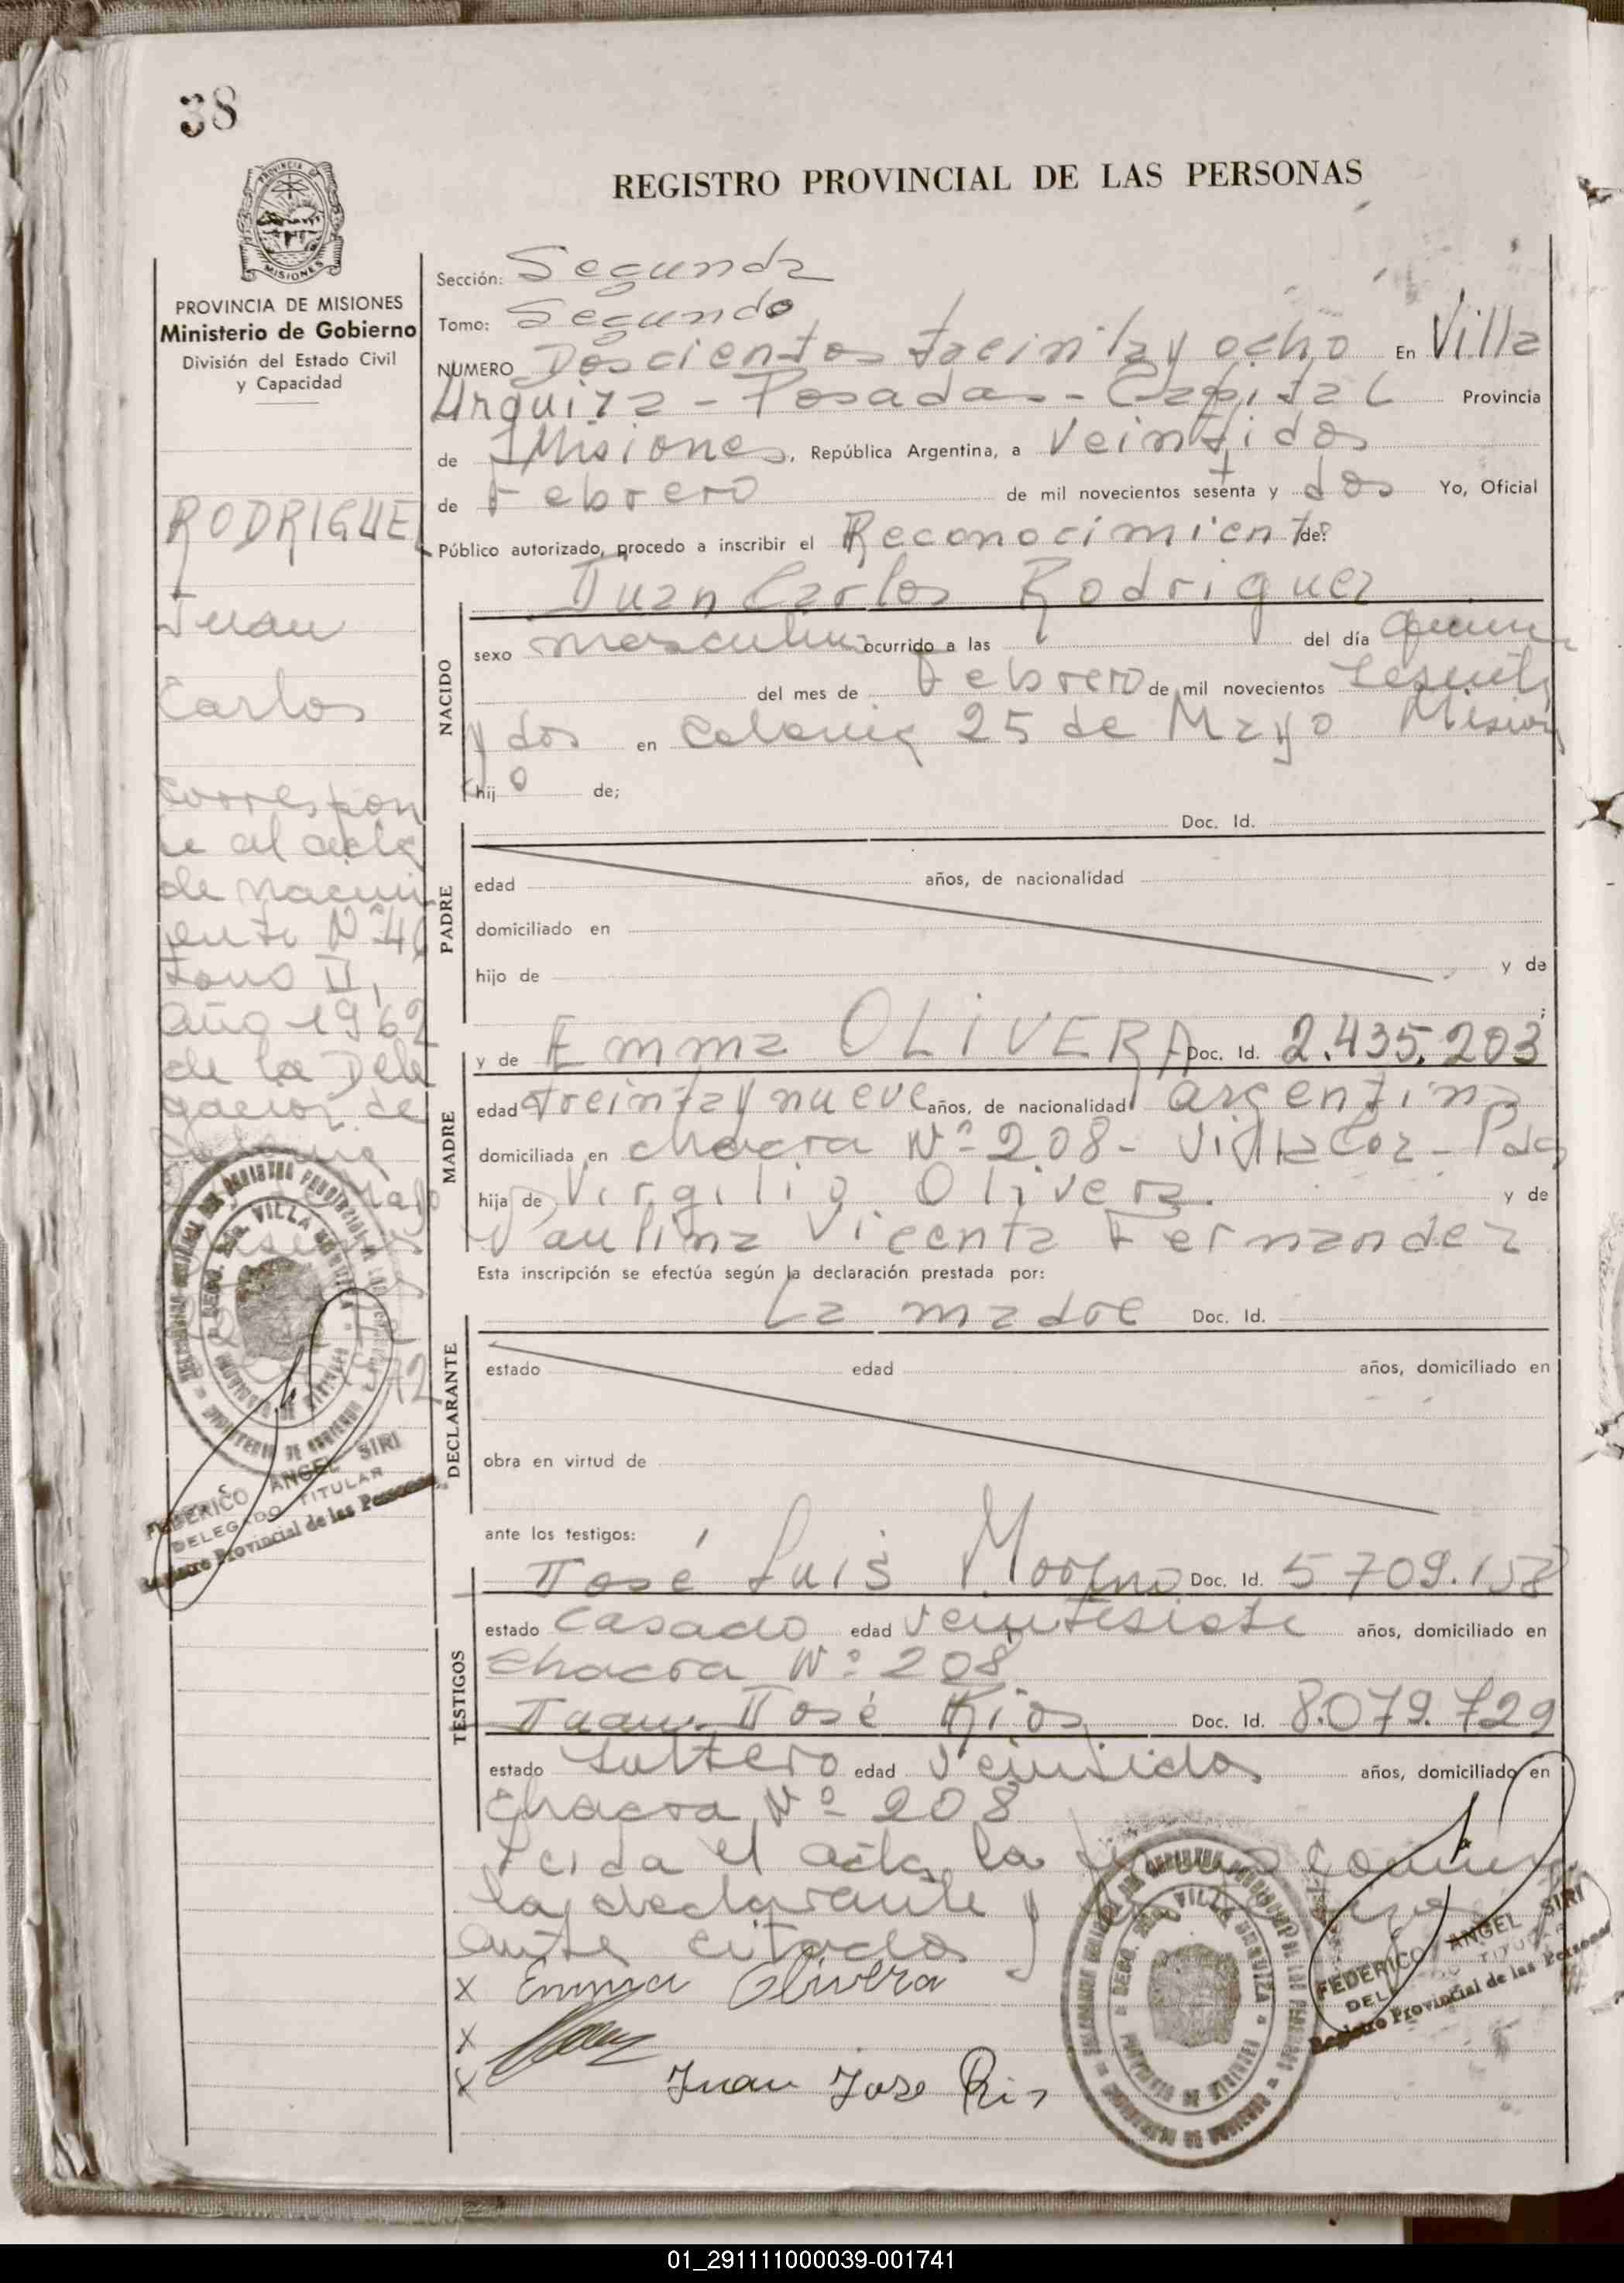 38
REGISTRO PROVINCIAL DE LAS PERSONAS
PROVINCIA DE MISIONES
Ministerio de Gobierno
División del Estado Civil
y Capacidad
RODRIGUE
Juan
Carlos
Correspon
de al acta
de nacimi
ento Nº 46
tomo II,
año 1962
de la Dele
gacion de
Sección: Segunda
Tomo: Segundo
NUMERO Doscientos treinta y ocho En Villa
Urquiza - Posadas - Capital Provincia
de Misiones, República Argentina, a veintidos
de Febrero de mil novecientos sesenta y dos Yo, Oficial
Público autorizado, procedo a inscribir el Reconocimient de:
Juan Carlos Rodriguez
NACIDO
sexo masculino ocurrido a las del día quince
del mes de Febrero de mil novecientos sesenta
y dos en Colonia 25 de Mayo Mision
hijo de;
PADRE
Doc. Id.
edad años, de nacionalidad
domiciliado en
hijo de y de
MADRE
y de Emma OLIVERA Doc. Id. 2.435.203
edad treinta y nueve años, de nacionalidad argentina
domiciliada en chacra Nº 208 - Villa Coz - Pdas
hija de Virgilio Olivera y de
Paulina Vicenta Fernandez
Esta inscripción se efectúa según la declaración prestada por:
DECLARANTE
La madre Doc. Id.
estado edad años, domiciliado en
obra en virtud de
ante los testigos:
TESTIGOS
José Luis Moreno Doc. Id. 5.709.158
estado casado edad veintisiete años, domiciliado en
chacra Nº 208
Juan José Rios Doc. Id. 8.079.729
estado soltero edad veintidos años, domiciliado en
chacra Nº 208
Leida el acta, la
la declarante y
ante citados
x Emma Olivera
x
x Juan Jose Rios
FEDERICO ANGEL SIRI
DELEGADO TITULAR
Registro Provincial de las Personas
FEDERICO ANGEL SIRI
Registro Provincial de las Personas
01_291111000039-001741